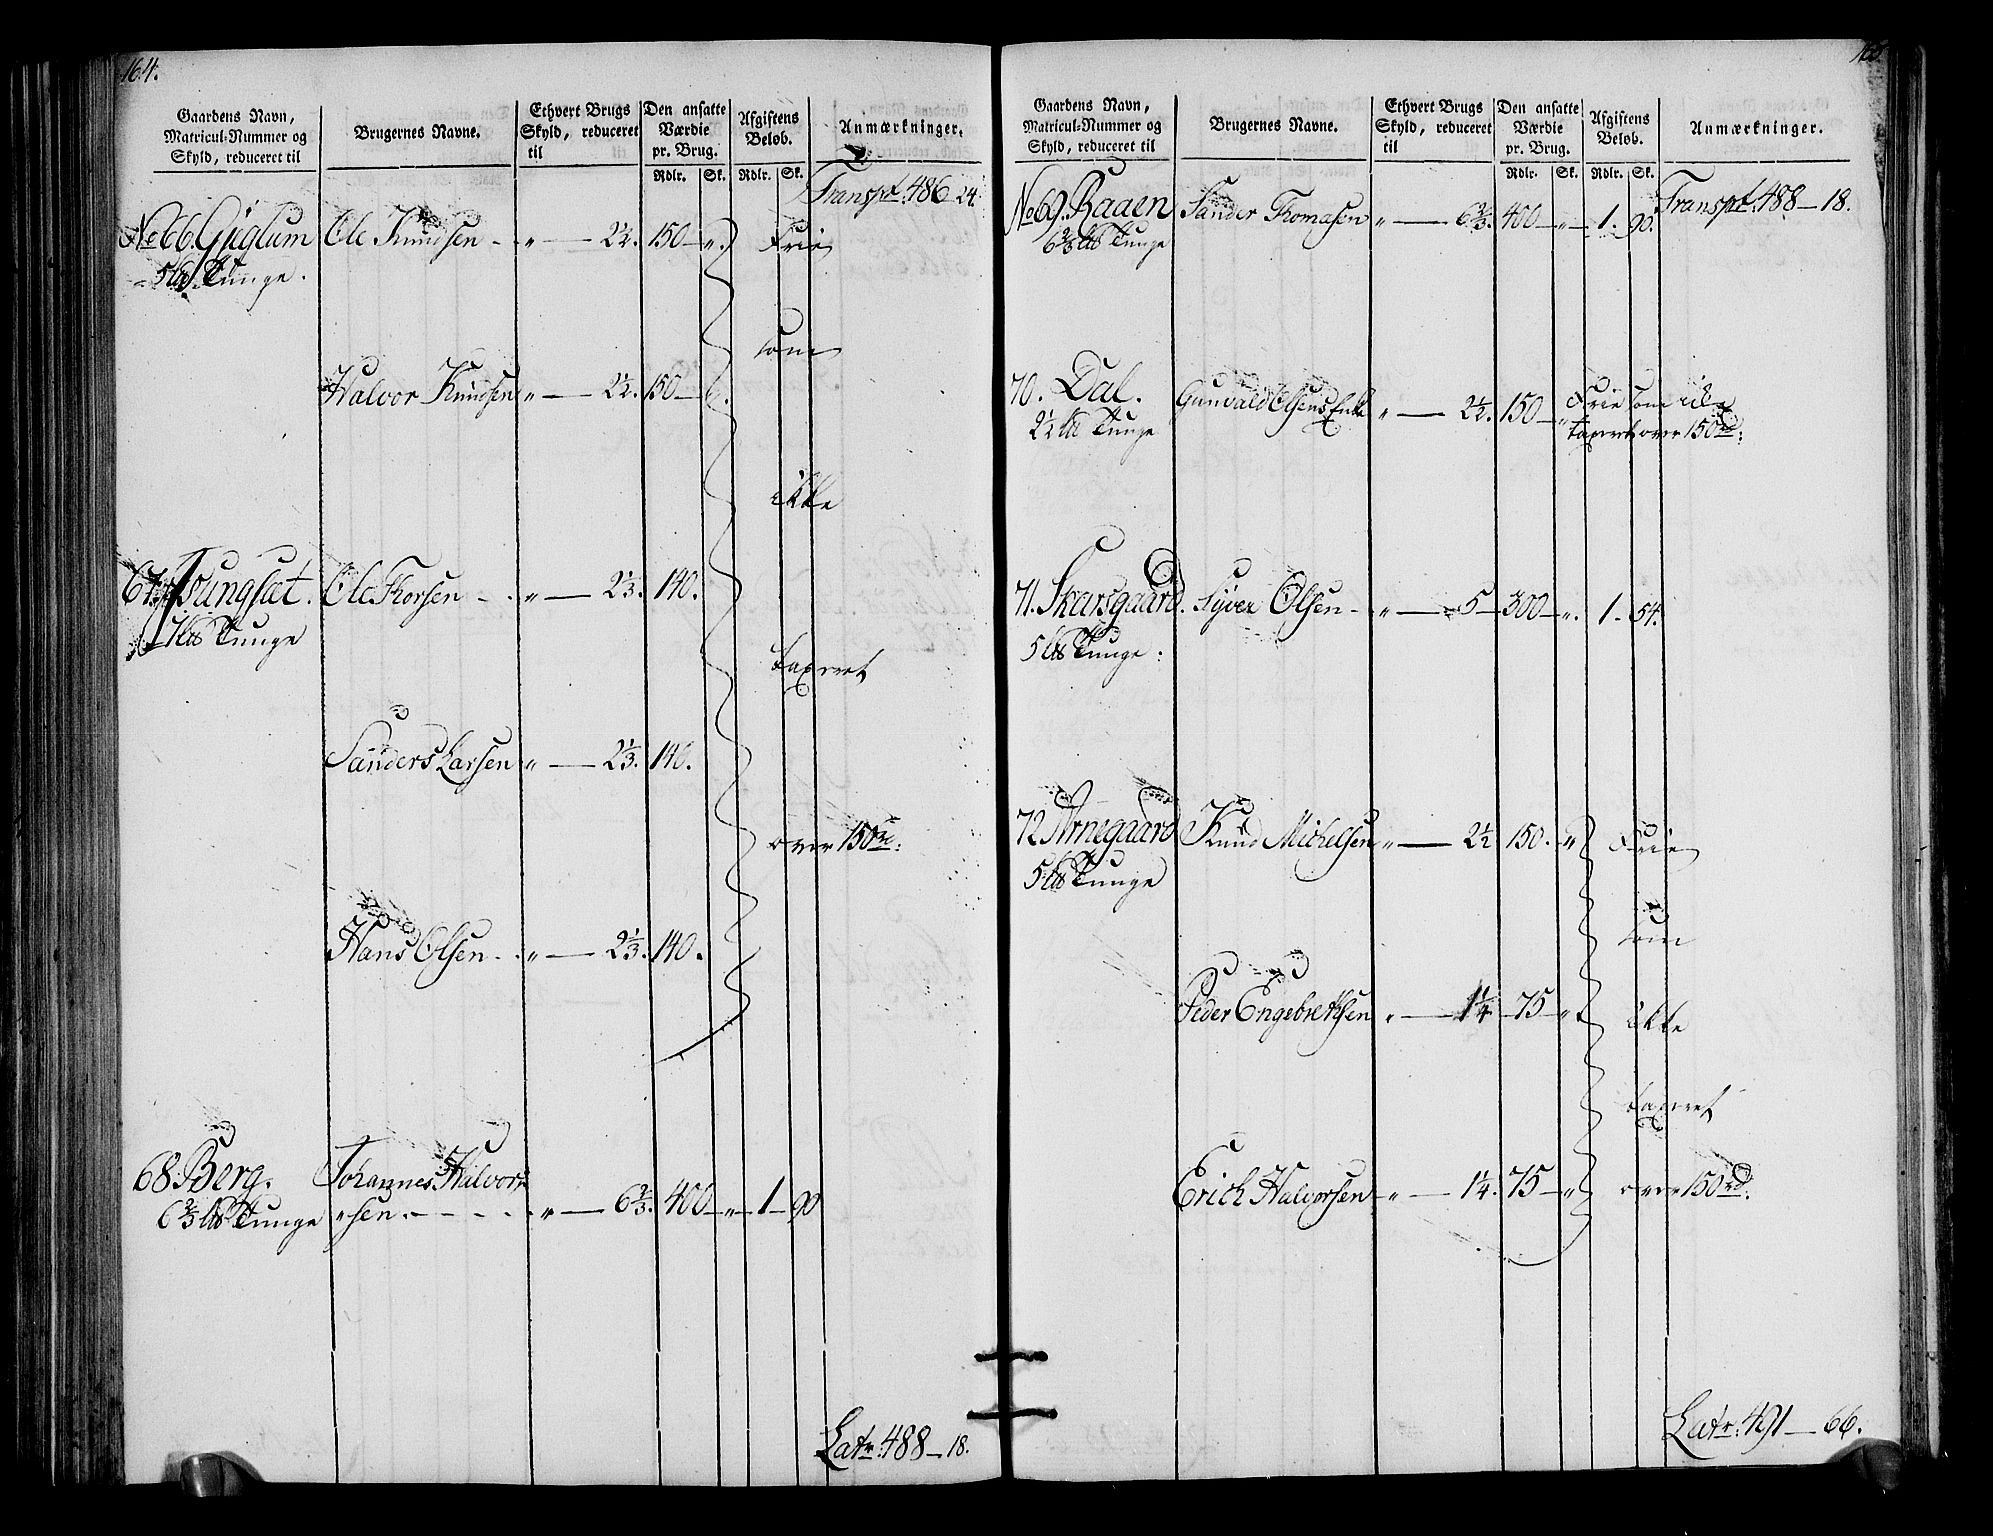 164.
Gaardens Navn, Matricul-Nummer og Skyld, reduceret til
Brugernes Navne.
Ethvert Brugs Skyld, reduceret til
Den ansatte Værdie pr. Brug.
Afgiftens Beløb.
Anmærkninger.
Rdlr. Sk. Rdlr. Sk.
Transpt. 486 24.
No 66. Ole Knudsen - . „ — 2½. 150 — „. Frie
5 Tunge.
som
Halvor Knudsen „ — 2½. 150 —
ikke
67. Ole Thorsen - . „ — 2⅓. 140.
7 Tunge
taxeret
Sanders Larsen „ — 2⅓. 140.
over 150 rd:
Hans Olsen - . „ — 2⅓. 140.
68. Berg. Johannes Halvor-
6⅔ Tunge „sen. - - - - „ — 6⅔. 400 — „ — 1 — 90
Latr: 488 — 18.
165.
Gaardens Navn, Matricul-Nummer og Skyld, reduceret til
Brugernes Navne.
Ethvert Brugs Skyld, reduceret til
Den ansatte Værdie pr. Brug.
Afgiftens Beløb.
Anmærkninger.
Rdlr. Sk. Rdlr. Sk.
Transpt. 488 — 18.
No 69. Raaen Sander Thomasen „ — 6⅔. 400 — „ — 1. 90.
6⅔ Tunge
70. Dal. Gunvald Olsens Enke „ — 2½. 150 — „ Frie som ikke
2½ Tunge taxeret over 150 rd:
71. Skarsgaard. Syver Olsen - „ — 5 — 300 — „. 1 - 54.
5 Tunge:
72 Arnegaard Knud Michelsen „ — 2½ 150. „ Frie
5 Tunge
som
Peder Engebrethsen „ — 1¼. 75 — „ ikke
taxeret
Erich Halvorsen „ — 1¼. 75 — „ over 150 rd:
Latr: 491 — 66.